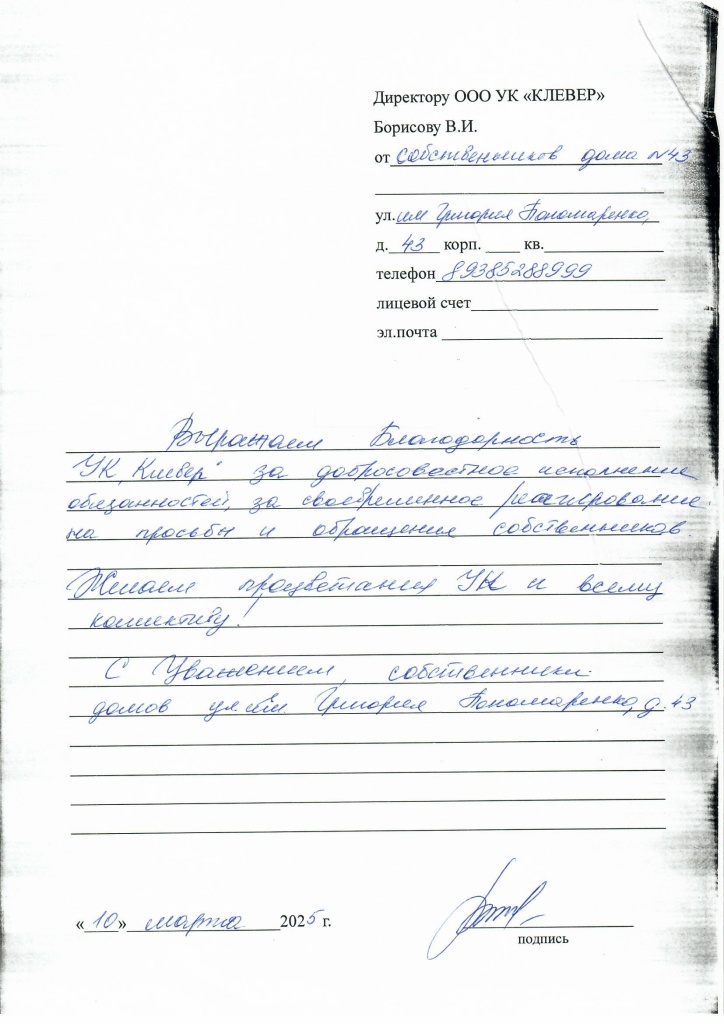 Директору ООО УК «КЛЕВЕР»
Борисову В.И.
от Собственников дома №43
ул. им Григория Пономаренко,
д. 43 корп. ____ кв.
телефон 89385288999
лицевой счет
эл.почта
Выражаем Благодарность
УК „Клевер" за добросовестное исполнение
обязанностей, за своевременное реагирование
на просьбы и обращения собственников.
Желаем процветания УК и всему
коллективу!
С Уважением, собственники
домов ул им Григория Пономаренко, д. 43
«10» марта 2025 г.
подпись